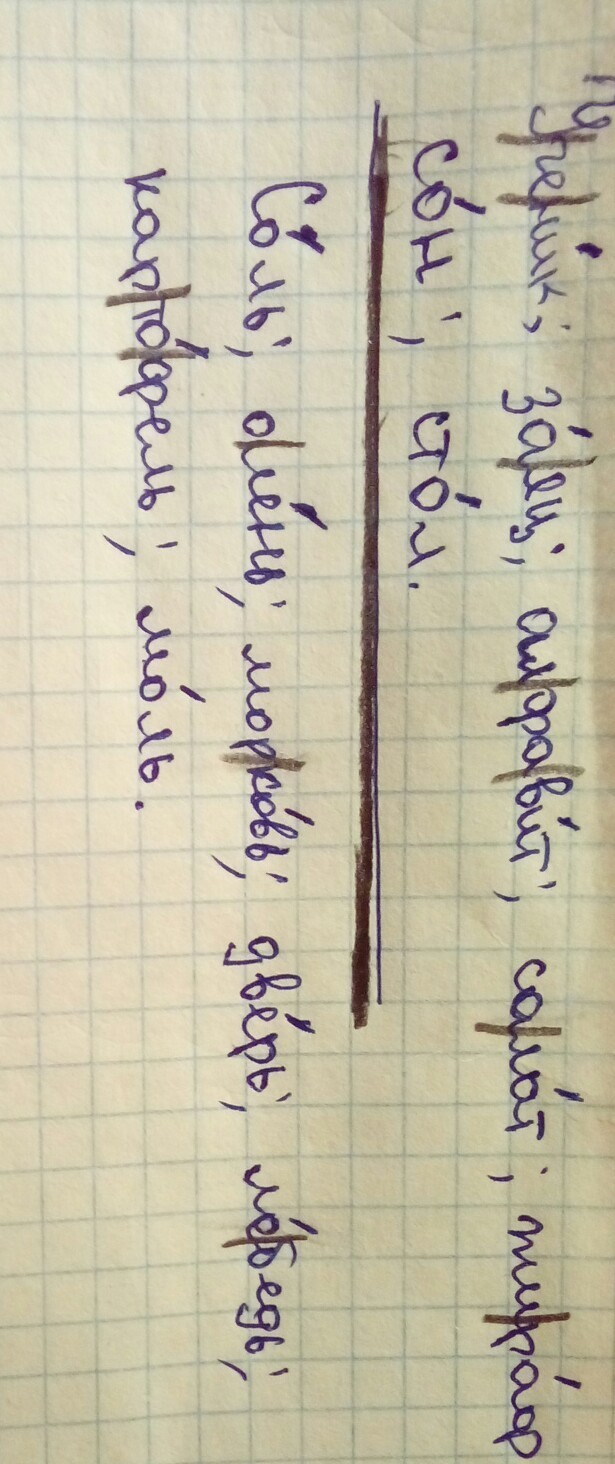 Ученик; заяц; алфавит; салат; жираф
сон; стол.
Соль; олень; морковь; дверь; лебедь;
картофель; моль.